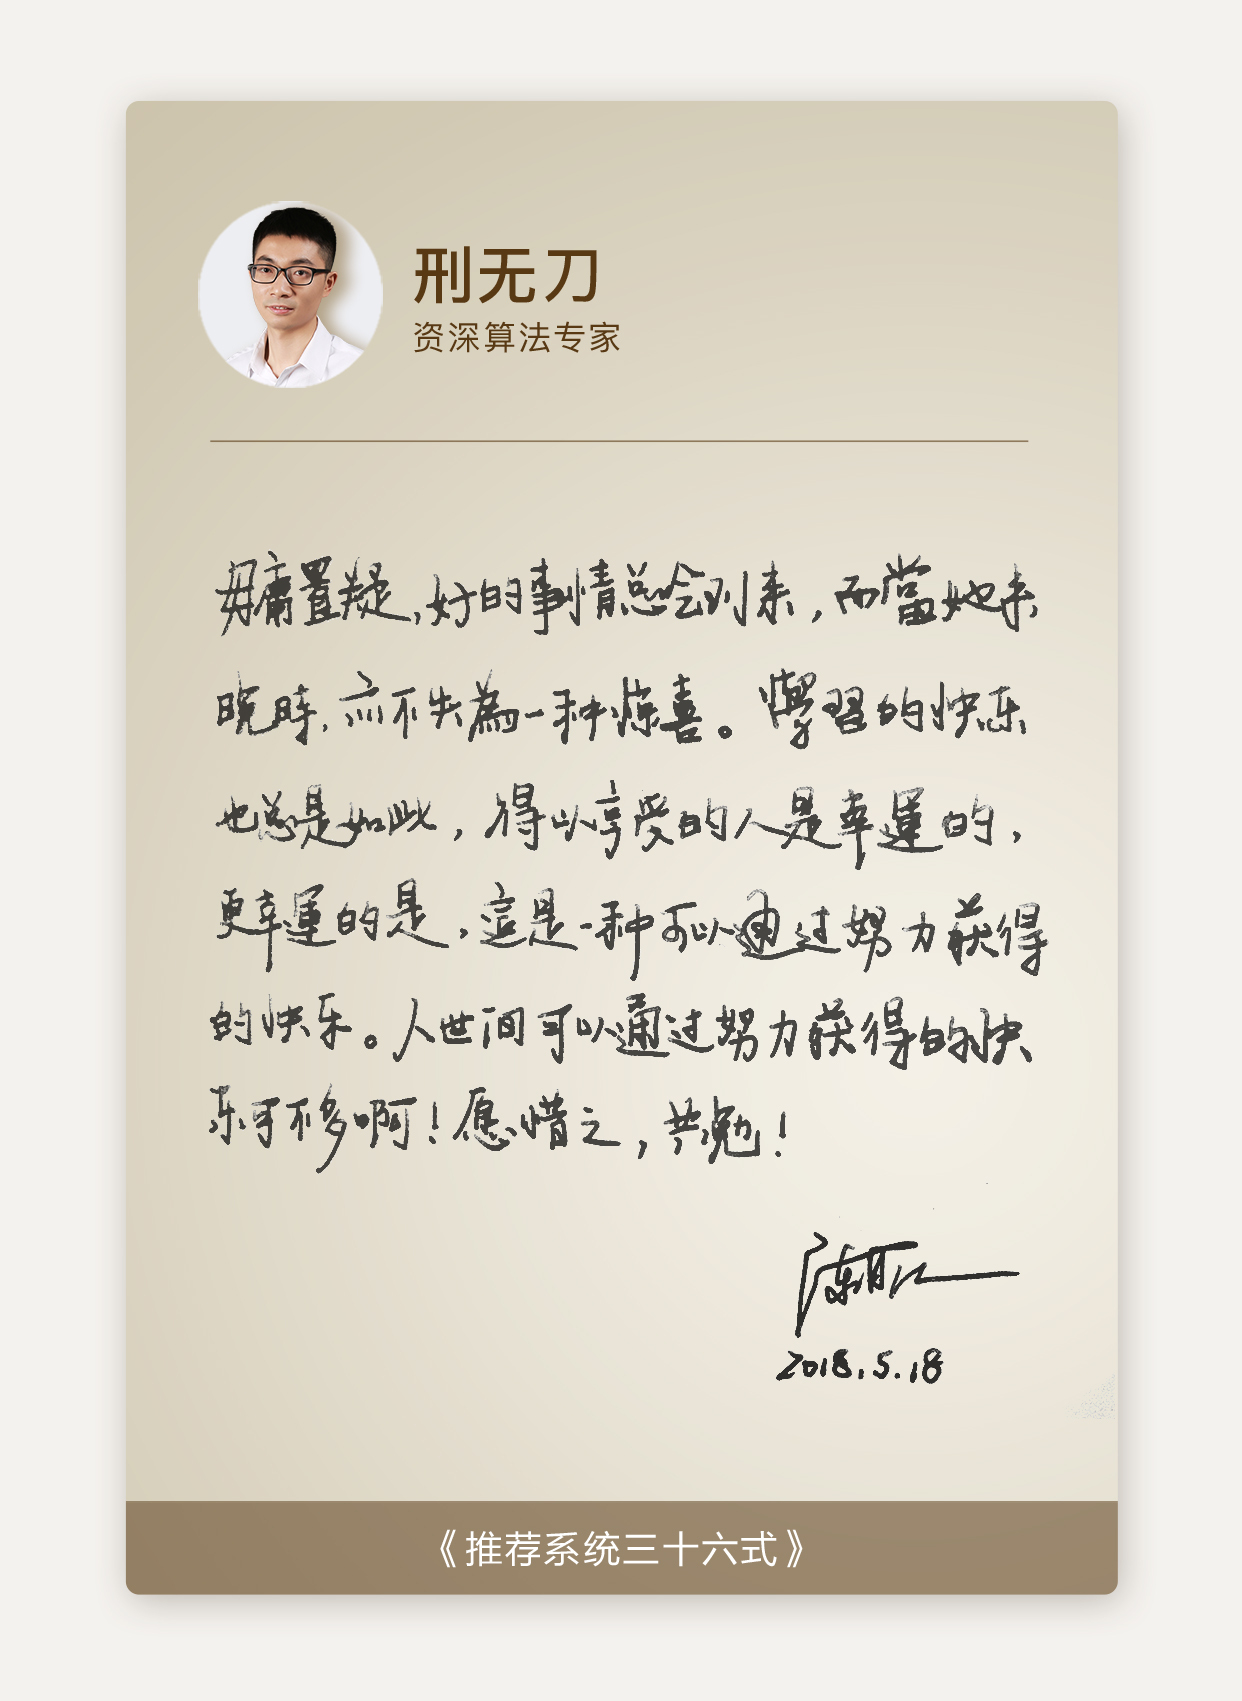 刑无刀
资深算法专家
毋庸置疑,好的事情总会到来,而當她来
晚時,亦不失為一种惊喜。學習的快乐
也总是如此,得以享受的人是幸運的,
更幸運的是,這是一种可以通过努力获得
的快乐。人世间可以通过努力获得的快
乐可不多啊!愿惜之,共勉!
2018.5.18
《推荐系统三十六式》